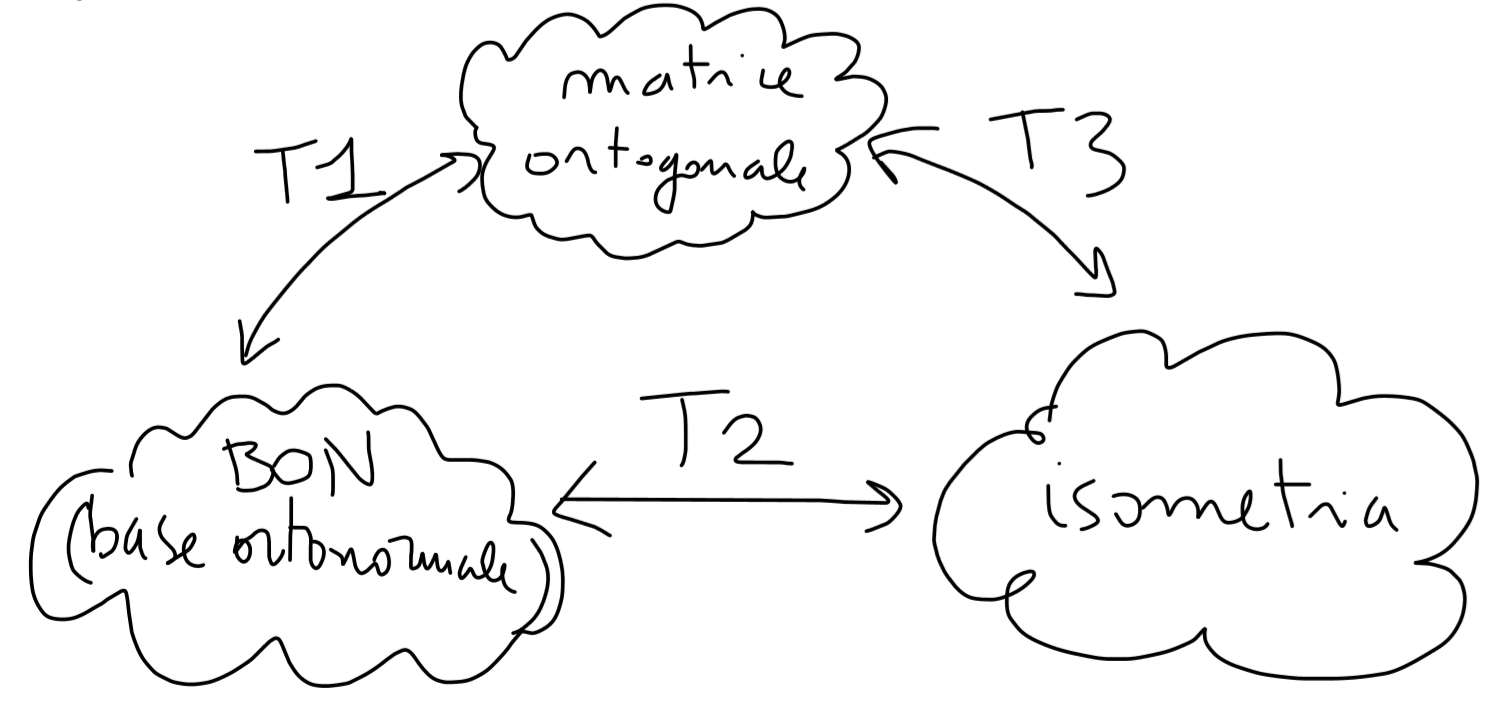 matrice
ortogonale
T1
T3
T2
BON
(base ortonormale)
isometria